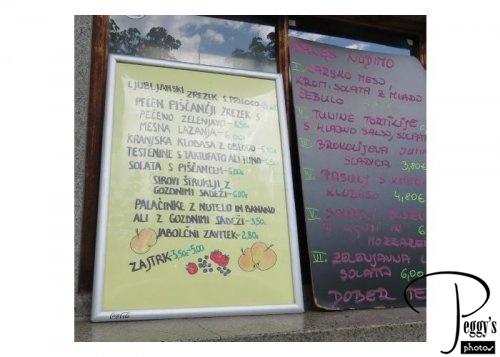 LJUBLJANSKI
ZREZEK S PRILOGO
PEČEN PIŠČANČJI ZREZEK S
PEČENO ZELENJAVO
MESNA LAZANJA
KRANJSKA KLOBASA Z OBLOGO
TESTENINE S TARTUFATO ALI TUNO
SOLATA S PIŠČANCEM
SIROVI ŠTRUKLJI Z
GOZDNIMI SADEŽI-6,00€
PALAČINKE Z NUTELO IN BANANO
ALI Z GOZDNIMI SADEŽI-3,50€
JABOLČNI ZAVITEK-2,80€
ZAJTRK-3,50-5,00
Coca-Cola
DANES NUDIMO
I. LAŠKO MESO,
KROM. SOLATA Z MLADO
ČEBULO
II. TUNINE TORTILJE
S HLADNO SALSO, SOLATA
III. BROKOLIJEVA JUHA
SLADICA 3,80€
IV. PASULJ S
KLOBASO 4,80€
V. SOLATNI
VI. ZELENJAVNA
SOLATA 6,00
DOBER TEK
Peggy's
photos